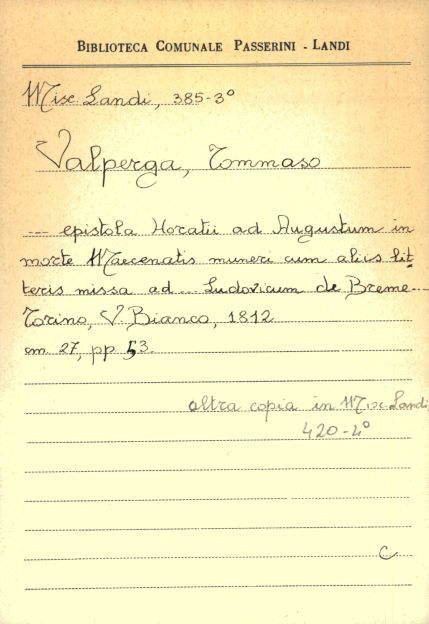 BIBLIOTECA COMUNALE PASSERINI - LANDI
Misc. Landi, 385-3º
Valperga, Tommaso
--- epistola Horatii ad Augustum in
morte Maecenatis muneri cum aliis lit-
teris missa ad ... Ludovicum de Breme ---
Torino, V. Bianco, 1812
cm. 27, pp 53.
altra copia in Misc Landi
420-4º
C